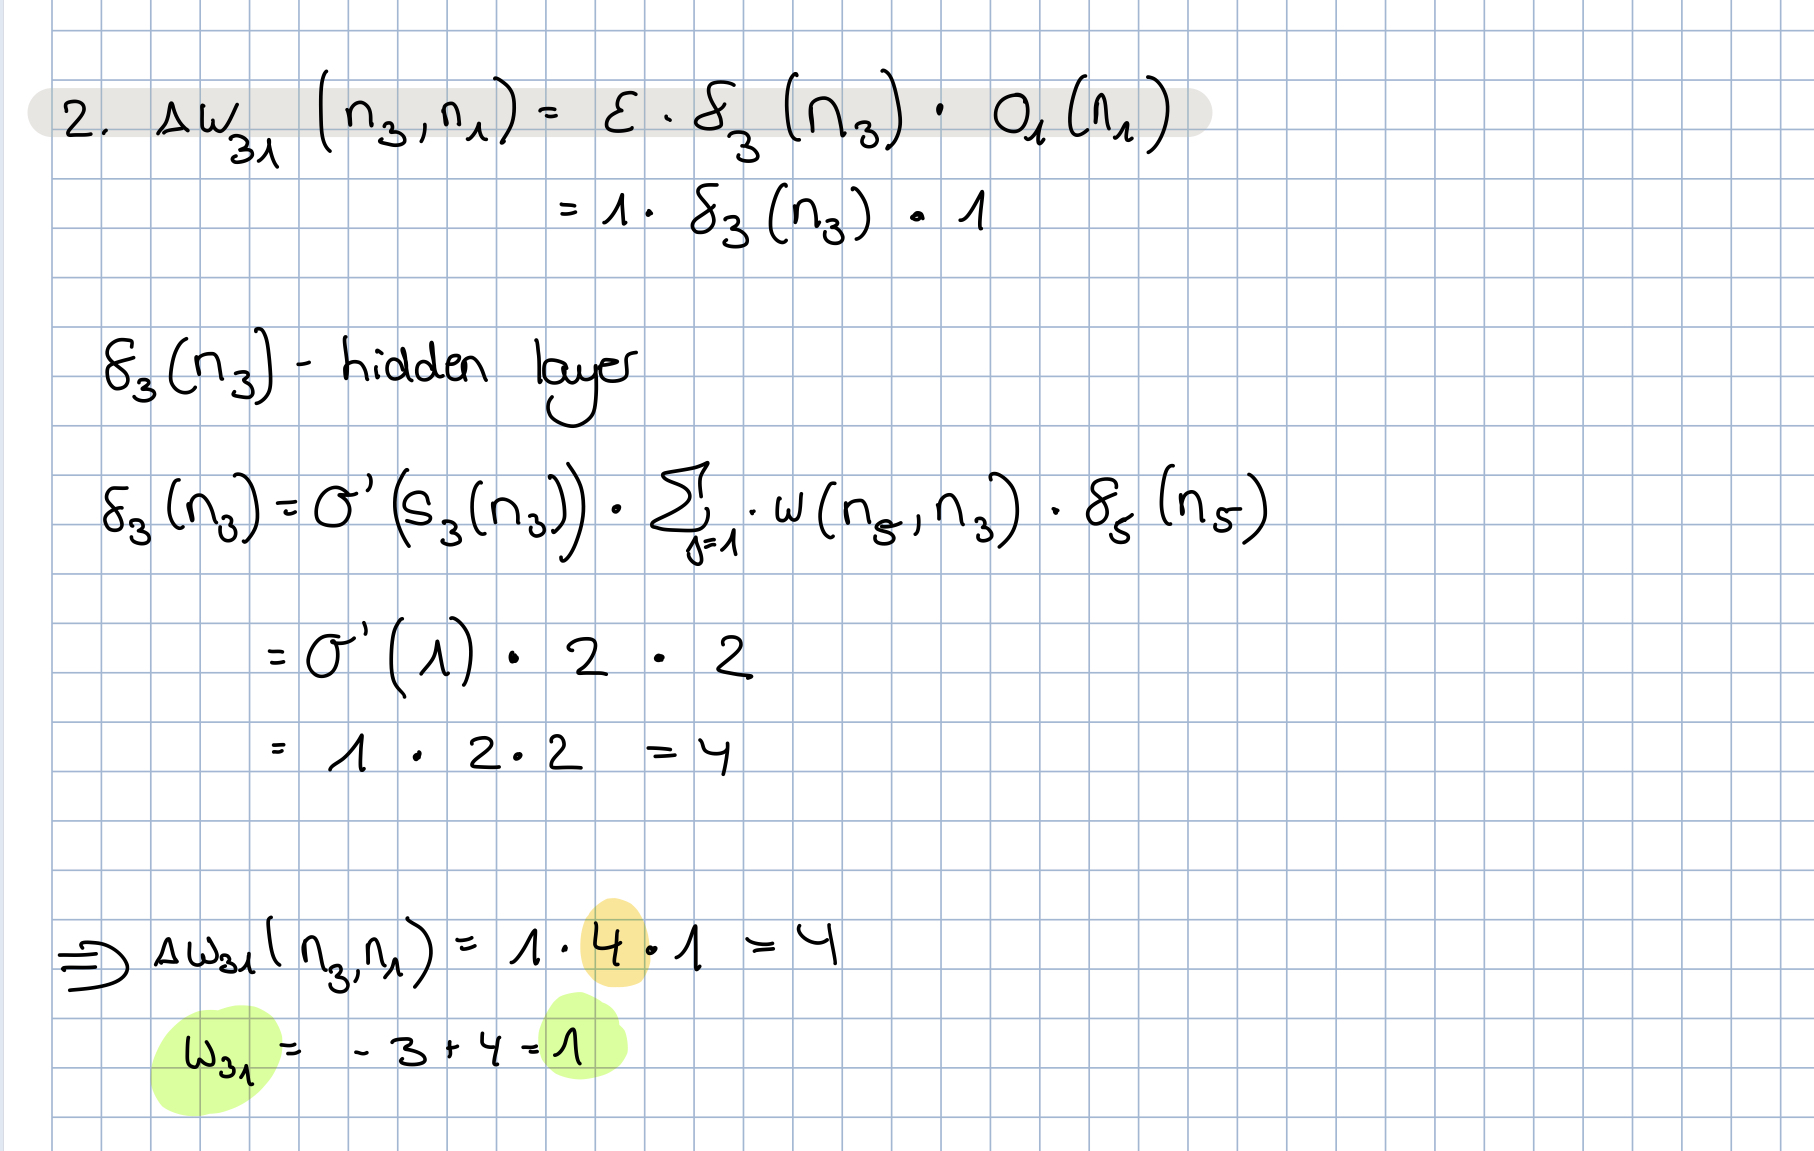 2. Δw₃₁ (n₃, n₁) = ε · δ₃ (n₃) · O₁ (n₁)
= 1 · δ₃ (n₃) · 1
δ₃ (n₃) - hidden layer
δ₃ (n₃) = σ' (s₃ (n₃)) · ∑ j=1 · w (n₅, n₃) · δ₅ (n₅)
= σ' (1) · 2 · 2
= 1 · 2 · 2 = 4
⇒ Δw₃₁ (n₃, n₁) = 1 · 4 · 1 = 4
w₃₁ = - 3 + 4 = 1